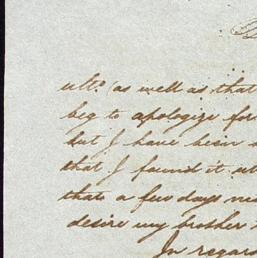 ult.º (as well as that
beg to apologize for
but I have been
that I found it
thats a few days
desire my brother
In regard